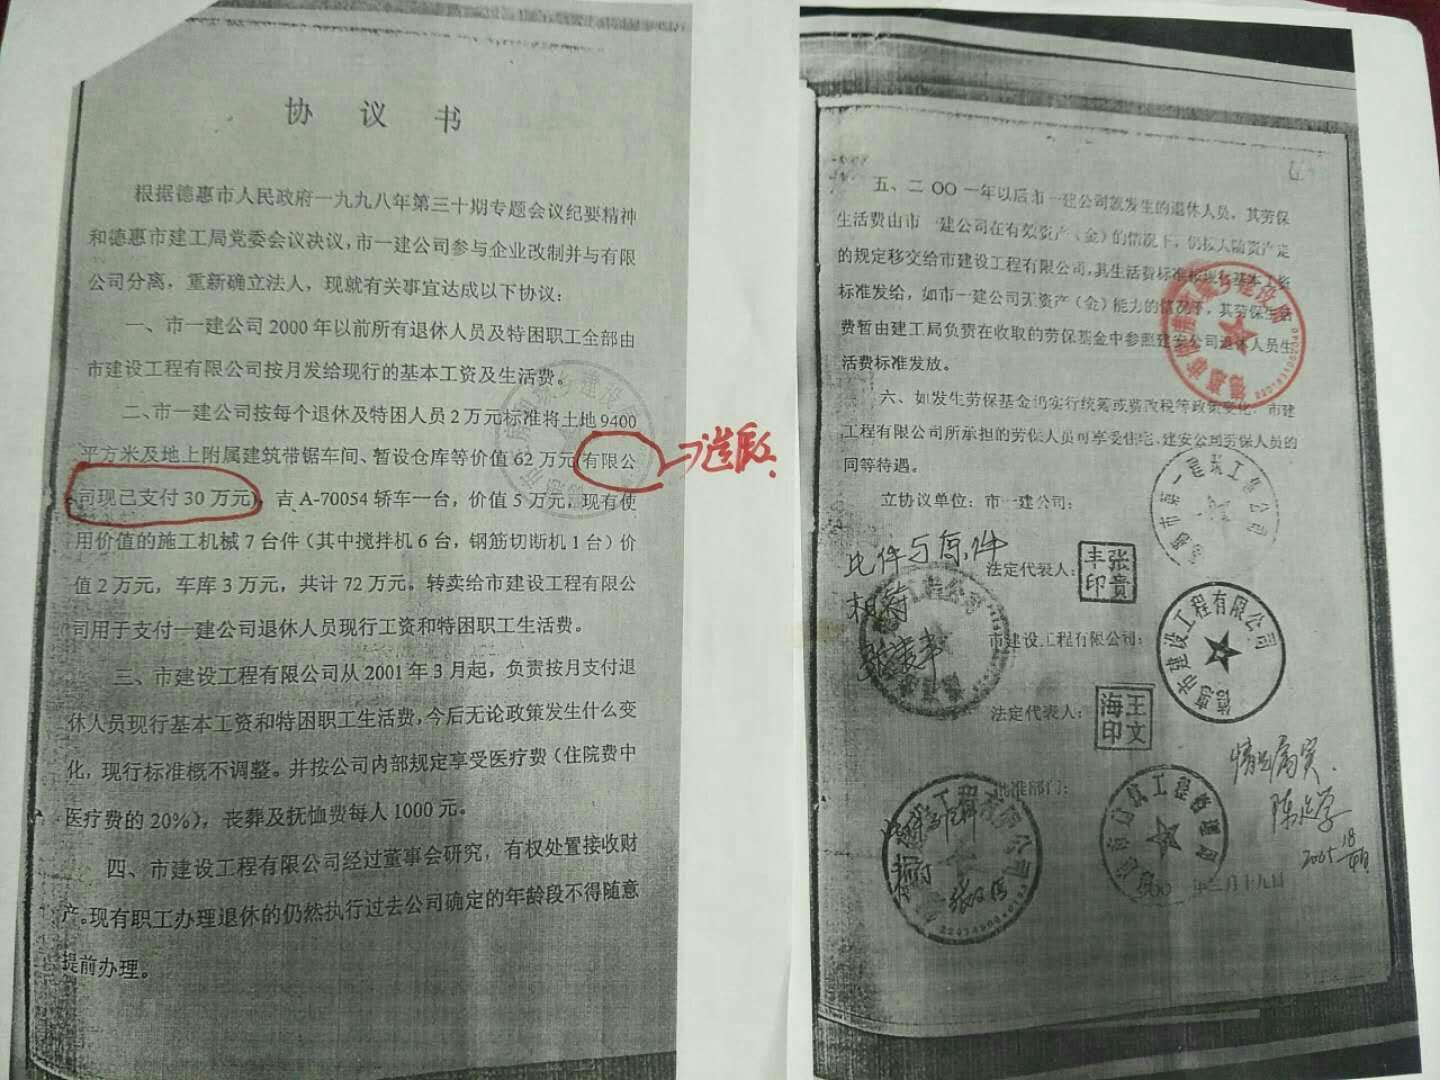 协 议 书
根据德惠市人民政府一九九八年第三十期专题会议纪要精神
和德惠市建工局党委会议决议，市一建公司参与企业改制并与有限
公司分离，重新确立法人，现就有关事宜达成以下协议：
一、市一建公司2000年以前所有退休人员及特困职工全部由
市建设工程有限公司按月发给现行的基本工资及生活费。
二、市一建公司按每个退休及特困人员2万元标准将土地9400
平方米及地上附属建筑带锯车间、暂设仓库等价值62万元(有限公
司现已支付30万元)，吉A-70054轿车一台，价值5万元，现有使
用价值的施工机械7台件（其中搅拌机6台，钢筋切断机1台）价
值2万元，车库3万元，共计72万元。转卖给市建设工程有限公
司用于支付一建公司退休人员现行工资和特困职工生活费。
三、市建设工程有限公司从2001年3月起，负责按月支付退
休人员现行基本工资和特困职工生活费，今后无论政策发生什么变
化，现行标准概不调整。并按公司内部规定享受医疗费（住院费中
医疗费的20%），丧葬及抚恤费每人1000元。
四、市建设工程有限公司经过董事会研究，有权处置接收财
产。现有职工办理退休的仍然执行过去公司确定的年龄段不得随意
提前办理。
五、二OO一年以后市一建公司新发生的退休人员，其劳保
生活费由市一建公司在有效资产（金）的情况下，仍按人随资产定
的规定移交给市建设工程有限公司，其生活费标准按现行基本工资
标准发给，如市一建公司无资产（金）能力的情况下，其劳保生活
费暂由建工局负责在收取的劳保基金中参照建安公司退休人员生
活费标准发放。
六、如发生劳保基金的实行统筹或费改税等政策变化，市建
工程有限公司所承担的劳保人员可享受住宅、建安公司劳保人员的
同等待遇。
立协议单位：市一建公司：
此件与原件
相符
法定代表人：
张贵丰印
市建设工程有限公司：
德惠市建设工程有限公司
法定代表人：
王文海印
批准部门：
情况属实.
年三月十九日